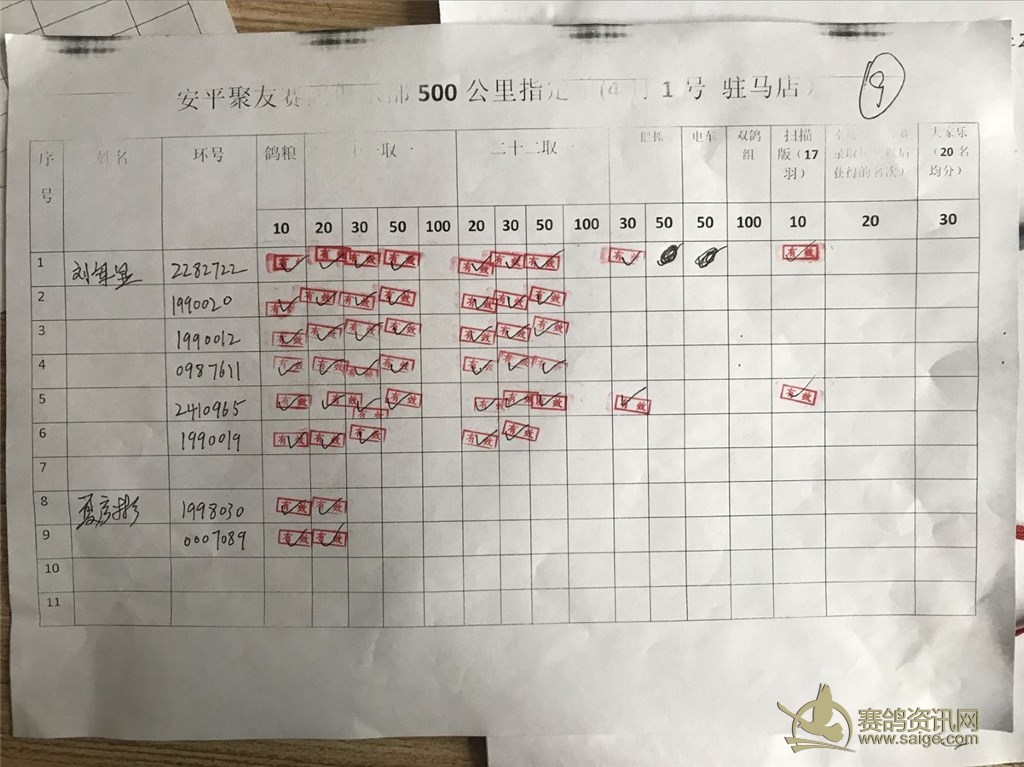 安平聚友赛 部 500 公里指定 (4月 1 号 驻马店)
⑨
序号 姓名 环号 鸽粮 取 二十二取 电车 双鸽组 扫描版（17羽） 获得的名次） 大家乐（20 名均分）
10 20 30 50 100 20 30 50 100 30 50 50 100 10 20 30
1 2282722 有 有效 有效 有效 有效 有效 有效 有效 有效
2 1990020 有效 有效 有效 有效 有效 有效 有效
3 1990012 有效 有效 有效 有效 有效 有效 有效
4 0987611 有效 有效 有效 有效 有效 有效 有效
5 2410965 有效 有效 有效 有效 有效 有效 有效 有效 有效
6 1990019 有效 有效 有效 有效 有效
7
8 夏彦彬 1998030 有效 有效
9 0007089 有效 有效
10
11
赛鸽资讯网
www.saige.com